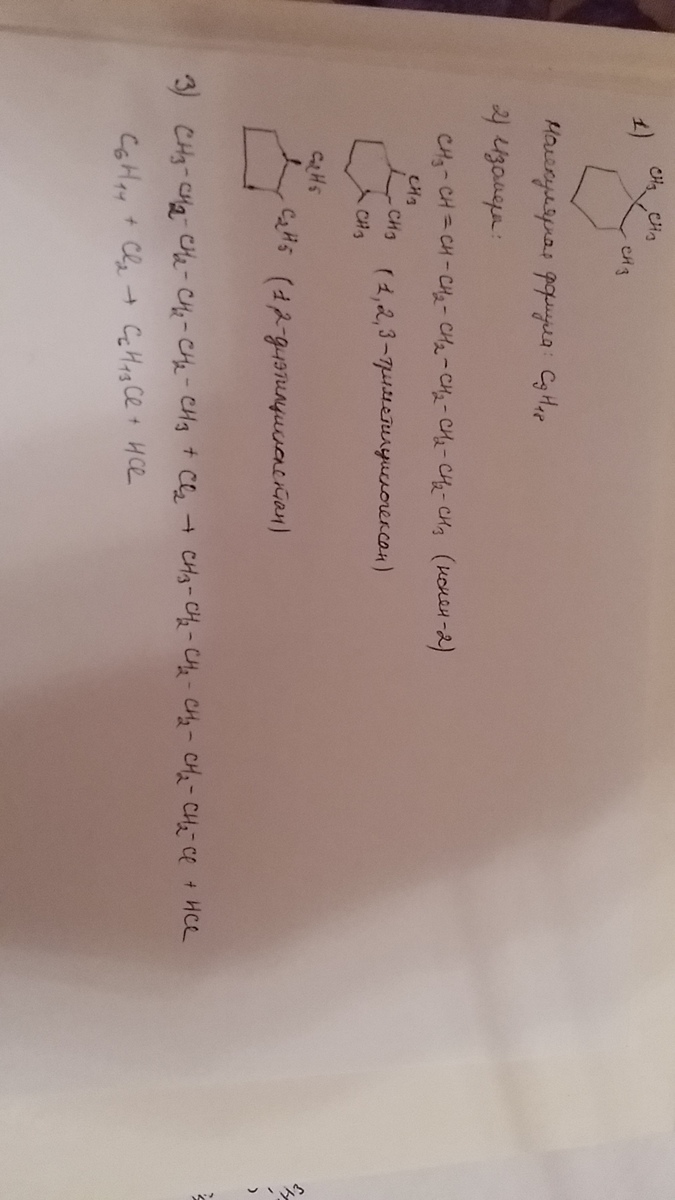 1) CH₃ CH₃ CH₃
Молекулярная формула: C₉H₁₈
2) Изомеры:
CH₃-CH=CH-CH₂-CH₂-CH₂-CH₂-CH₂-CH₃ (нонен-2)
CH₃ CH₃ CH₃ (1,2,3-триметилциклогексан)
C₂H₅ C₂H₅ (1,2-диэтилциклопентан)
3) CH₃-CH₂-CH₂-CH₂-CH₂-CH₃ + Cl₂ → CH₃-CH₂-CH₂-CH₂-CH₂-CH₂-Cl + HCl
C₆H₁₄ + Cl₂ → C₆H₁₃Cl + HCl